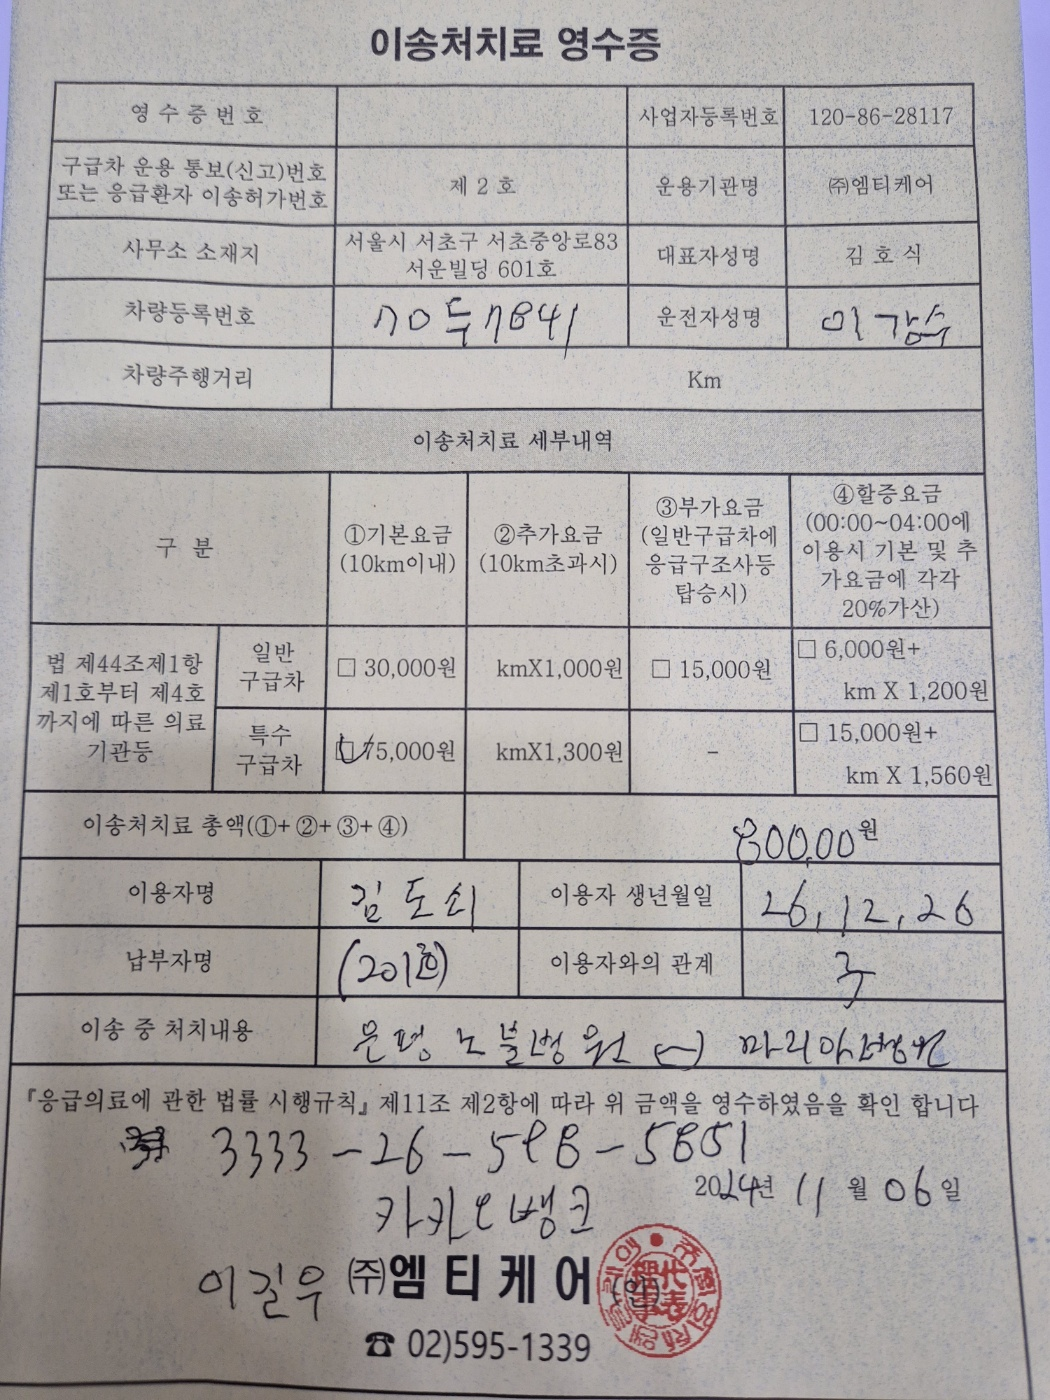 이송처치료 영수증
영 수 증 번 호 사업자등록번호 120-86-28117
구급차 운용 통보(신고)번호
또는 응급환자 이송허가번호 제 2 호 운용기관명 ㈜엠티케어
사무소 소재지 서울시 서초구 서초중앙로83
서운빌딩 601호 대표자성명 김 호 식
차량등록번호 70두7841 운전자성명 이강수
차량주행거리 Km
이송처치료 세부내역
구 분 ①기본요금
(10km이내) ②추가요금
(10km초과시) ③부가요금
(일반구급차에
응급구조사등
탑승시) ④할증요금
(00:00~04:00에
이용시 기본 및 추
가요금에 각각
20%가산)
법 제44조제1항
제1호부터 제4호
까지에 따른 의료
기관등
일반
구급차 □ 30,000원 kmX1,000원 □ 15,000원 □ 6,000원+
km X 1,200원
특수
구급차 □ 75,000원 kmX1,300원 - □ 15,000원+
km X 1,560원
이송처치료 총액(①+②+③+④) 80000원
이용자명 김 도 쇠 이용자 생년월일 26, 12, 26
납부자명 (201호) 이용자와의 관계
이송 중 처치내용 은평 노블병원
『응급의료에 관한 법률 시행규칙』 제11조 제2항에 따라 위 금액을 영수하였음을 확인 합니다
3333-26-598-5851
카카오뱅크 2024년 11 월 06 일
이길우 ㈜엠 티 케 어 (인)
☎ 02)595-1339